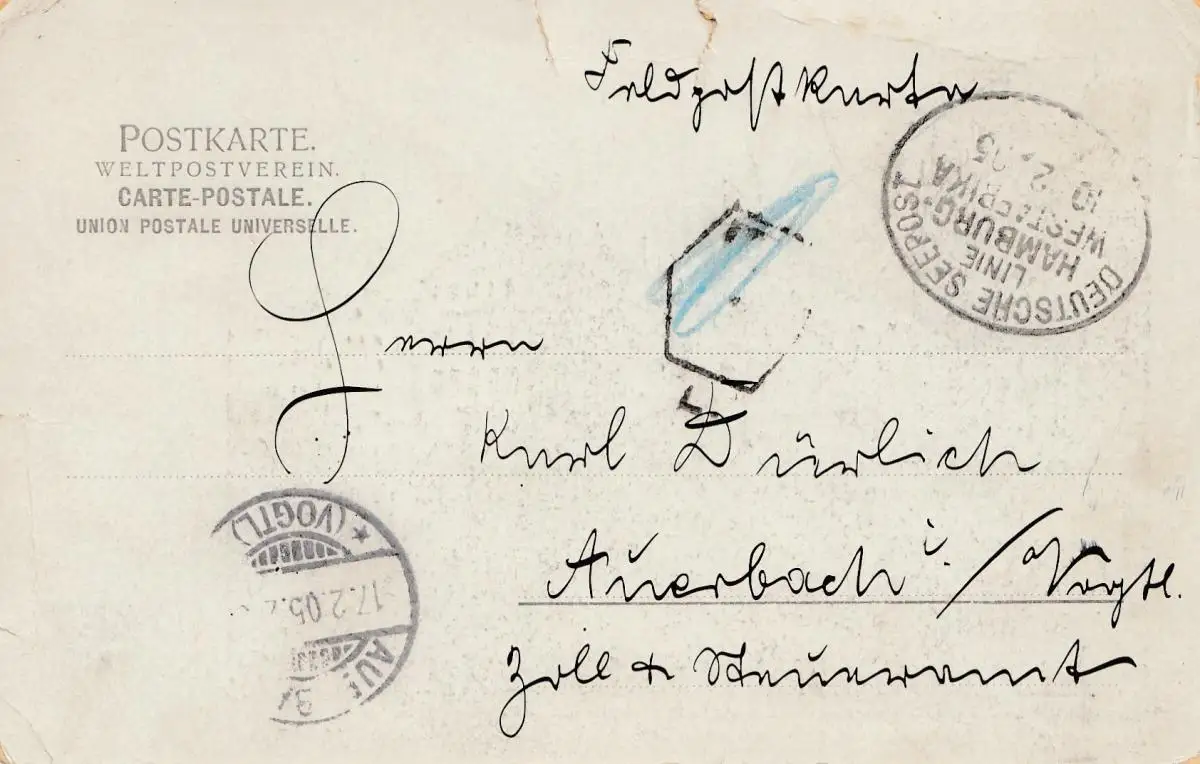 Feldpostkarte
POSTKARTE.
WELTPOSTVEREIN.
CARTE-POSTALE.
UNION POSTALE UNIVERSELLE.
DEUTSCHE SEEPOST
LINIE
HAMBURG-
WESTAFRIKA
10 2 05
Herrn
Karl Dürlich
Auerbach i./Vogtl.
Zoll & Steueramt
* (VOGTL)
17.2.05.
AUE